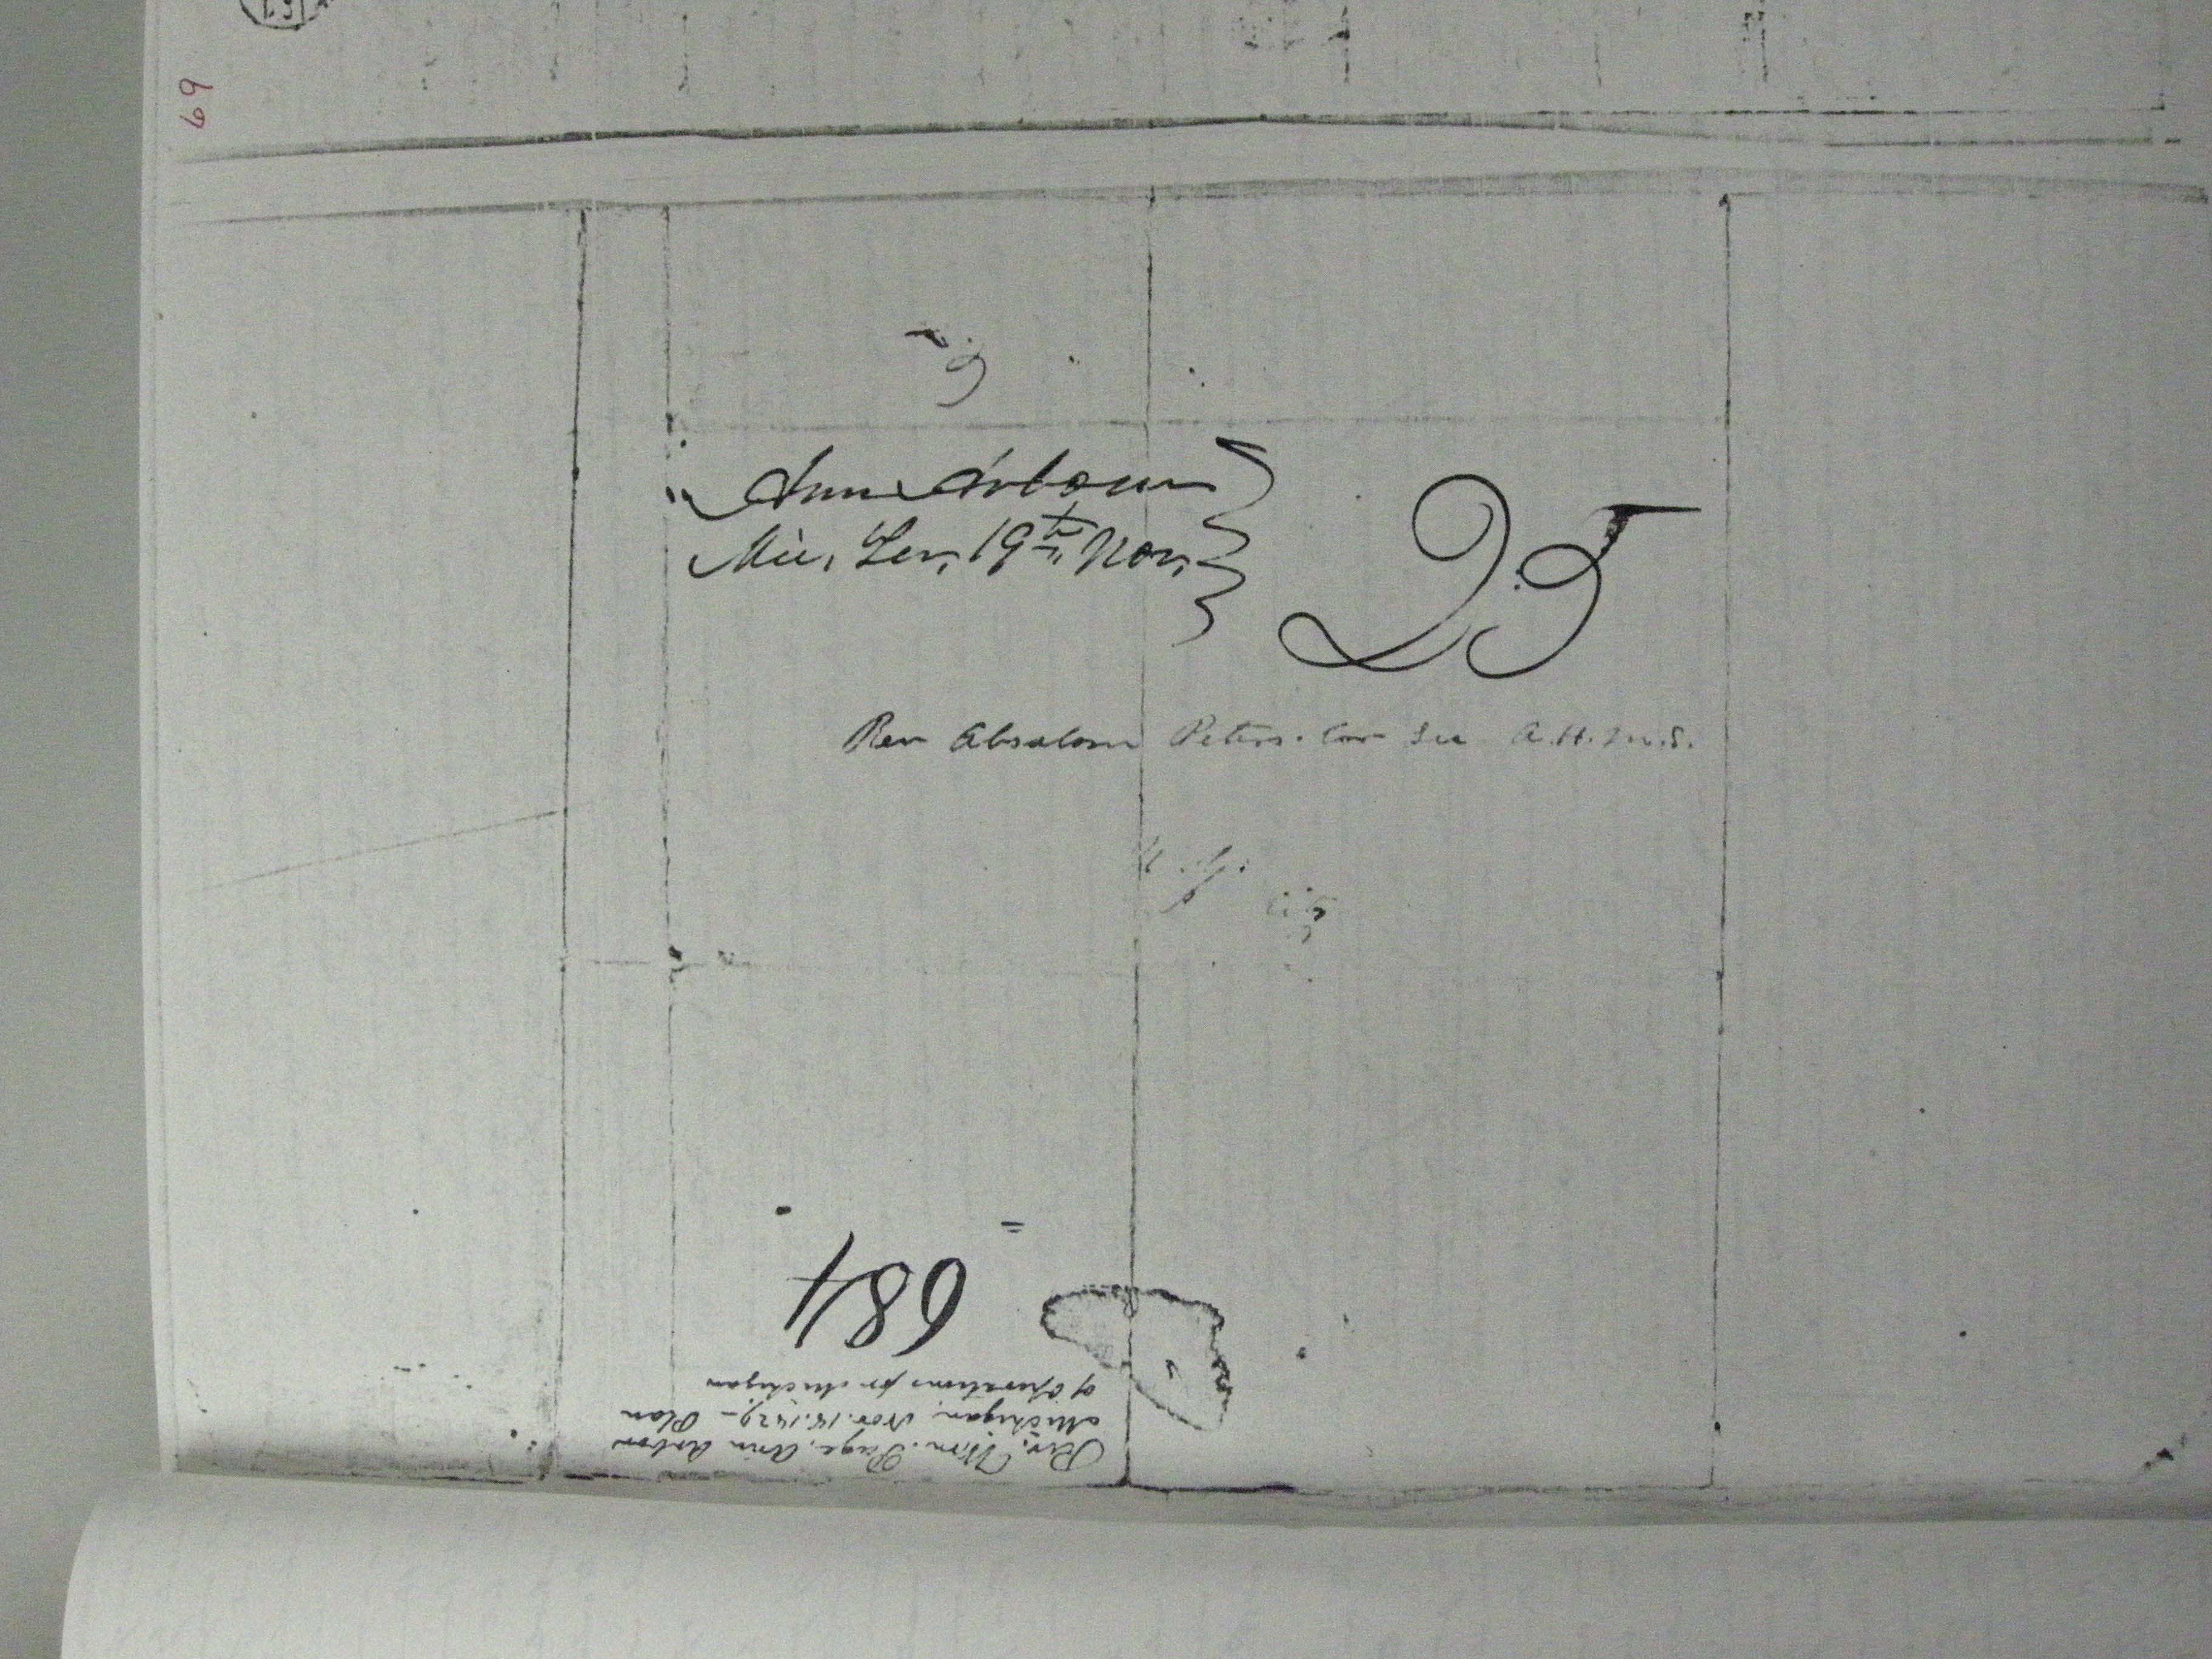 69
Ann Arbour
Mic. Ter. 19th Nov.
25
Rev Absalom Peters. Cor Sec A.H.M.S.
684
Rev. Wm. Page, Ann Arbor
Michigan, Nov. 18. 1829 - Plan
of operations for Michigan